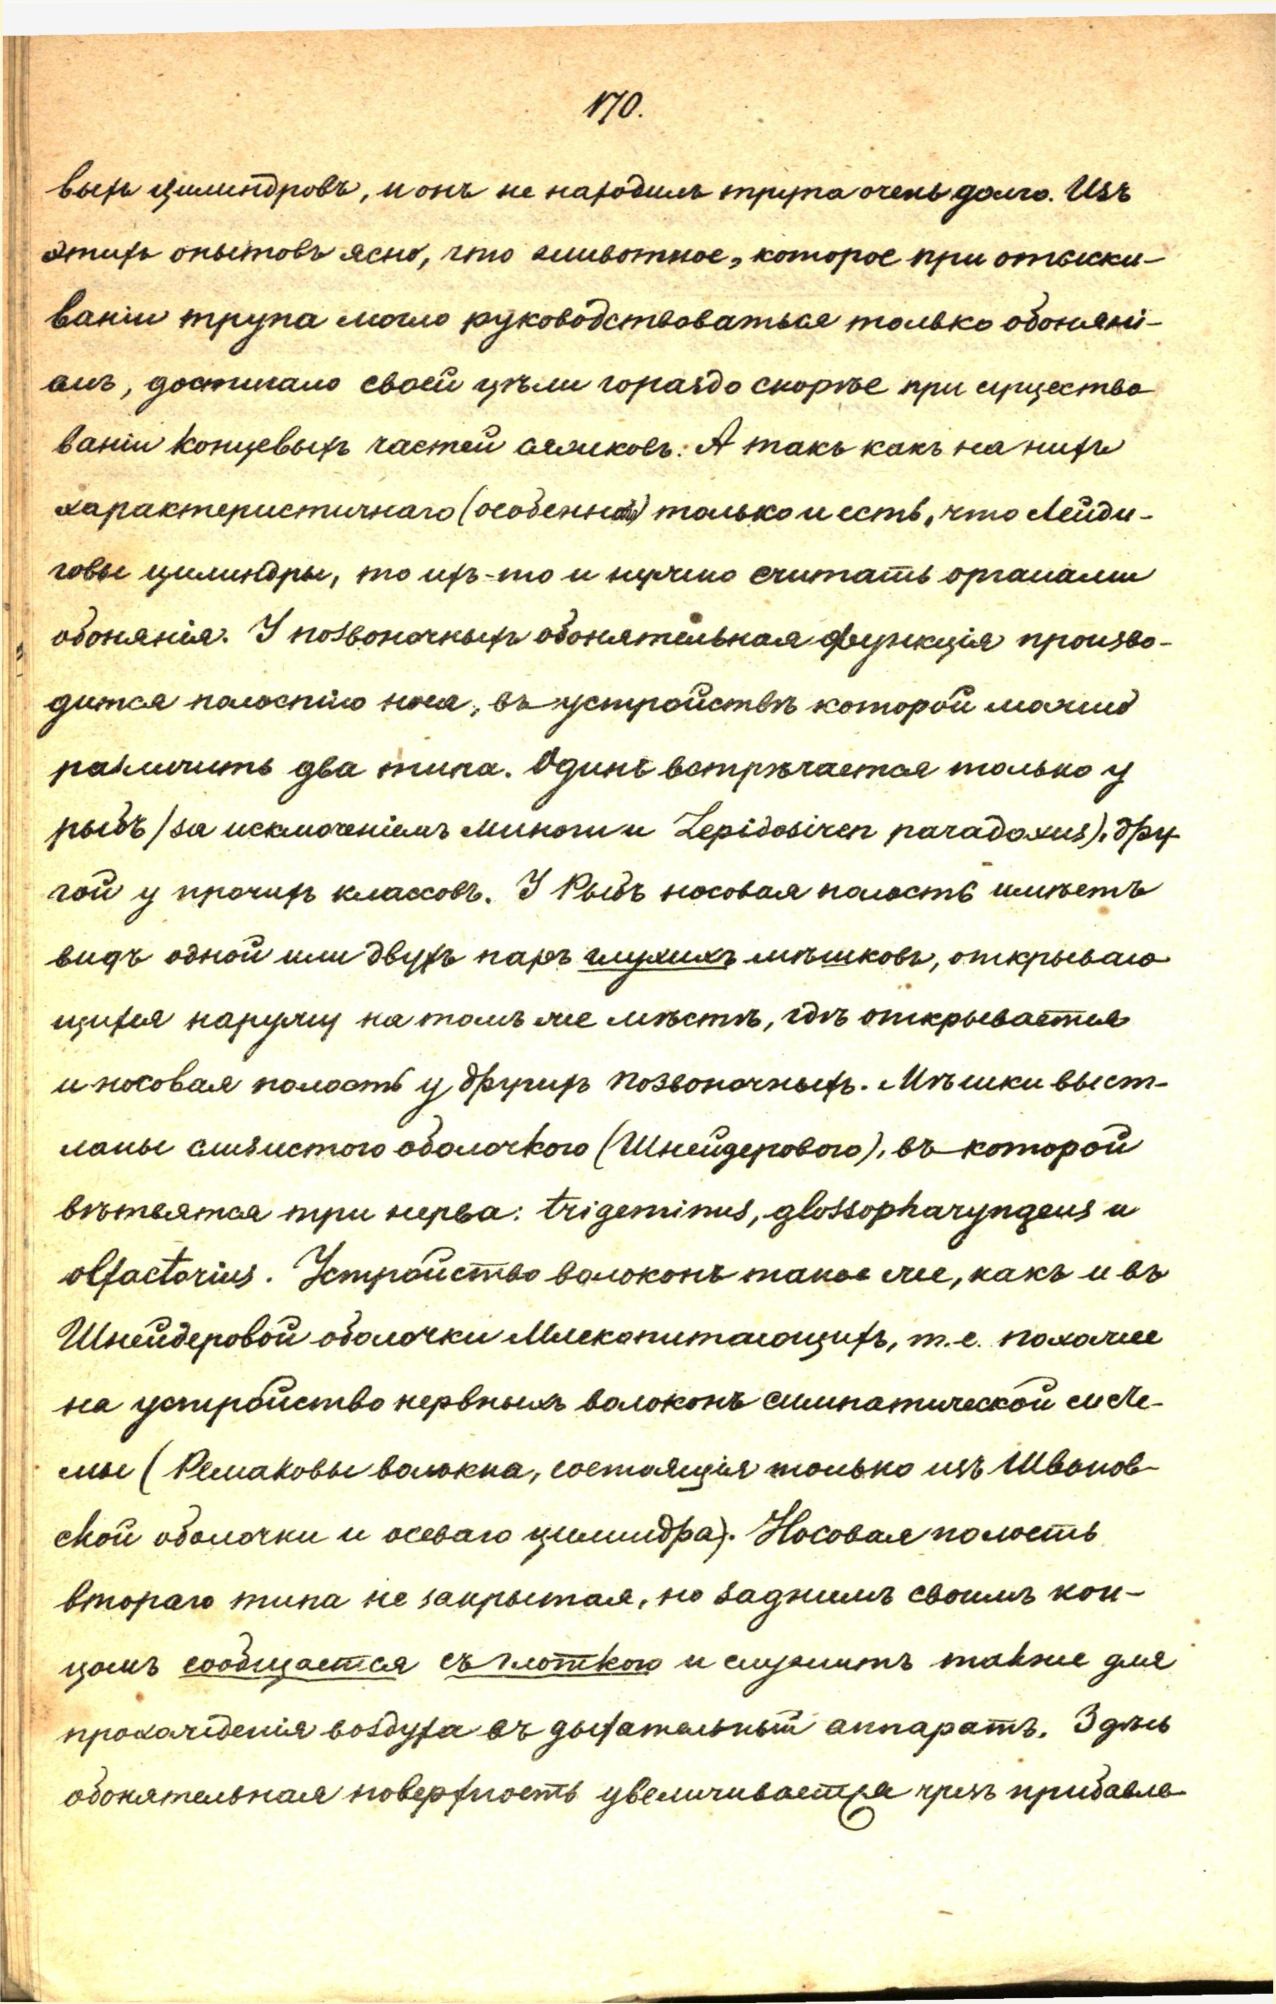 170.
выхъ цилиндровъ, и онъ не находилъ трупа очень долго. Изъ
этихъ опытовъ ясно, что животное, которое при отыски-
ваніи трупа могло руководствоваться только обоняні-
емъ, достигало своей цѣли гораздо скорѣе при существо
ваніи концевыхъ частей сяжковъ. А такъ какъ на нихъ
характеристичнаго (особенно) только и есть, что Лейди-
говы цилиндры, то ихъ-то и нужно считать органами
обонянія. У позвоночныхъ обонятельная функція произво-
дится полостію носа, въ устройствѣ которой можно
различить два типа. Одинъ встрѣчается только у
рыбъ (за исключеніемъ миноги и Lepidosiren paradoxus), дру
гой у прочихъ классовъ. У Рыбъ носовая полость имѣетъ
видъ одной или двухъ паръ глухихъ мѣшковъ, открываю
щихся наружу на томъ же мѣстѣ, гдѣ открывается
и носовая полость у другихъ позвоночныхъ. Мѣшки выст-
ланы слизистою оболочкою (Шнейдеровою), въ которой
вѣтвятся три нерва: trigeminus, glossopharyngeus и
olfactorius. Устройство волоконъ такое же, какъ и въ
Шнейдеровой оболочки Млекопитающихъ, т.е. похожее
на устройство нервныхъ волоконъ симпатической систе-
мы (Ремаковы волокна, состоящія только изъ Шванов-
ской оболочки и осеваго цилиндра). Носовая полость
втораго типа не закрытая, но заднимъ своимъ кон-
цомъ сообщается съ глоткою и служитъ также для
прохожденія воздуха въ дыхательный аппаратъ. Здѣсь
обонятельная поверхность увеличивается чрезъ прибавле